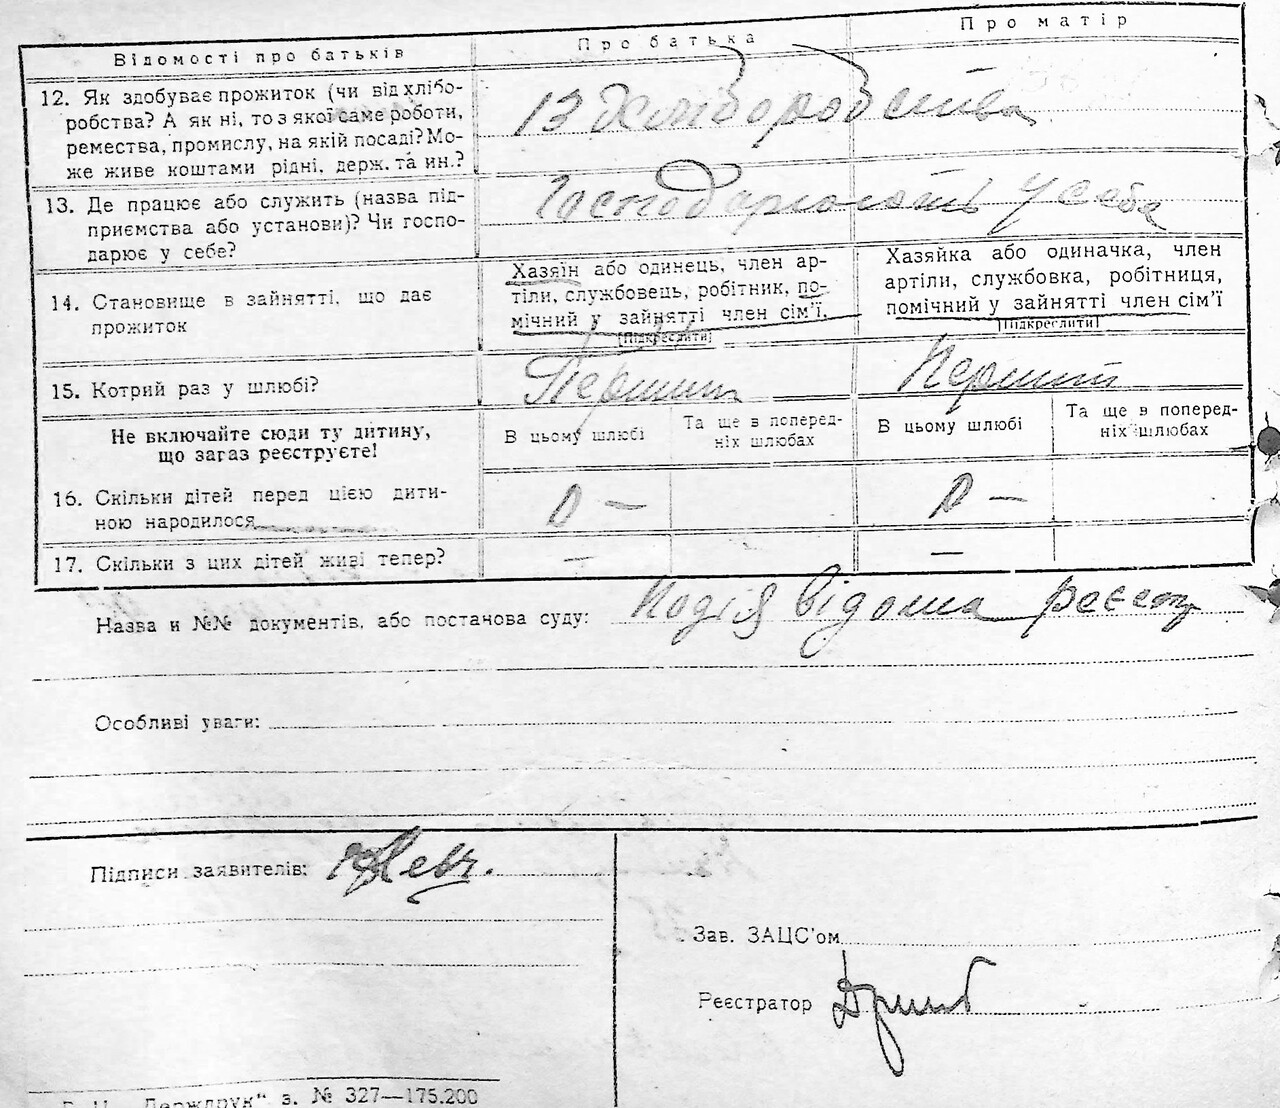 Відомості про батьків
Про батька
Про матір
12. Як здобуває прожиток (чи від хлібо-
робства? А як ні, то з якої саме роботи,
ремества, промислу, на якій посаді? Мо-
же живе коштами рідні, держ. та ин.?
Із хліборобства
13. Де працює або служить (назва під-
приємства або установи)? Чи госпо-
дарює у себе?
Господарюють у себе
14. Становище в зайнятті, що дає
прожиток
Хазяїн або одинець, член ар-
тіли, службовець, робітник, по-
мічний у зайнятті член сім'ї.
[Підкреслити]
Хазяйка або одиначка, член
артіли, службовка, робітниця,
помічний у зайнятті член сім'ї
[Підкреслити]
15. Котрий раз у шлюбі?
Перший
Перший
Не включайте сюди ту дитину,
що зараз реєструєте!
В цьому шлюбі
Та ще в поперед-
ніх шлюбах
В цьому шлюбі
Та ще в поперед-
ніх шлюбах
16. Скільки дітей перед цією дити-
ною народилося
0 —
0 —
17. Скільки з цих дітей живі тепер?
—
—
Назва и №№ документів, або постанова суду: Подія відома реєстр
Особливі уваги:
Підписи заявителів:
Зав. ЗАЦС'ом
Реєстратор
Держдрук" з. № 327—175.200